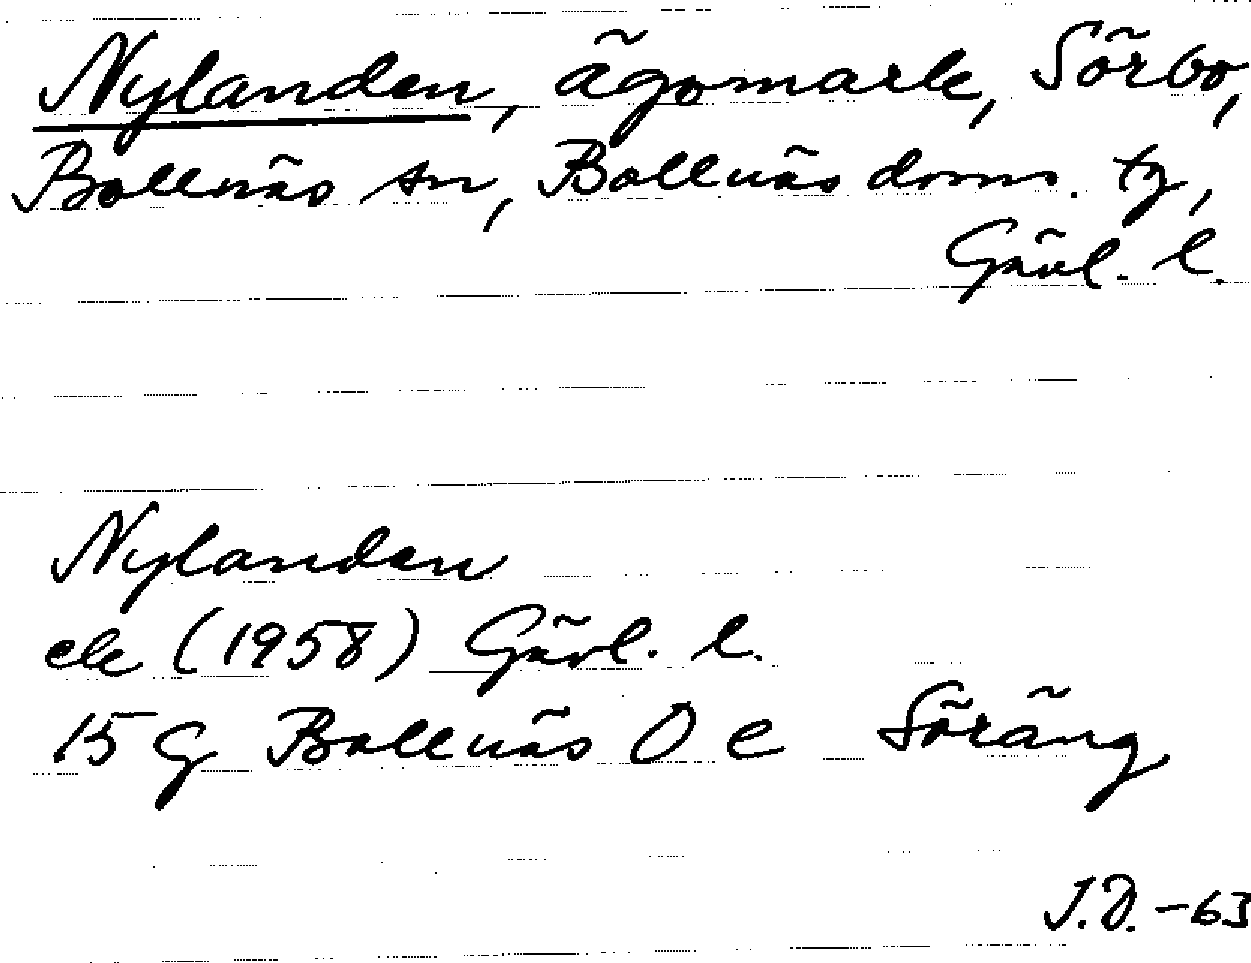 Nylanden, ägomark, Sörbo,
Bollnäs sn, Bollnäs doms. tg,
Gävl. l.
Nylanden
ek (1958) Gävl. l.
15 G Bollnäs O e Söräng
J.D. -63